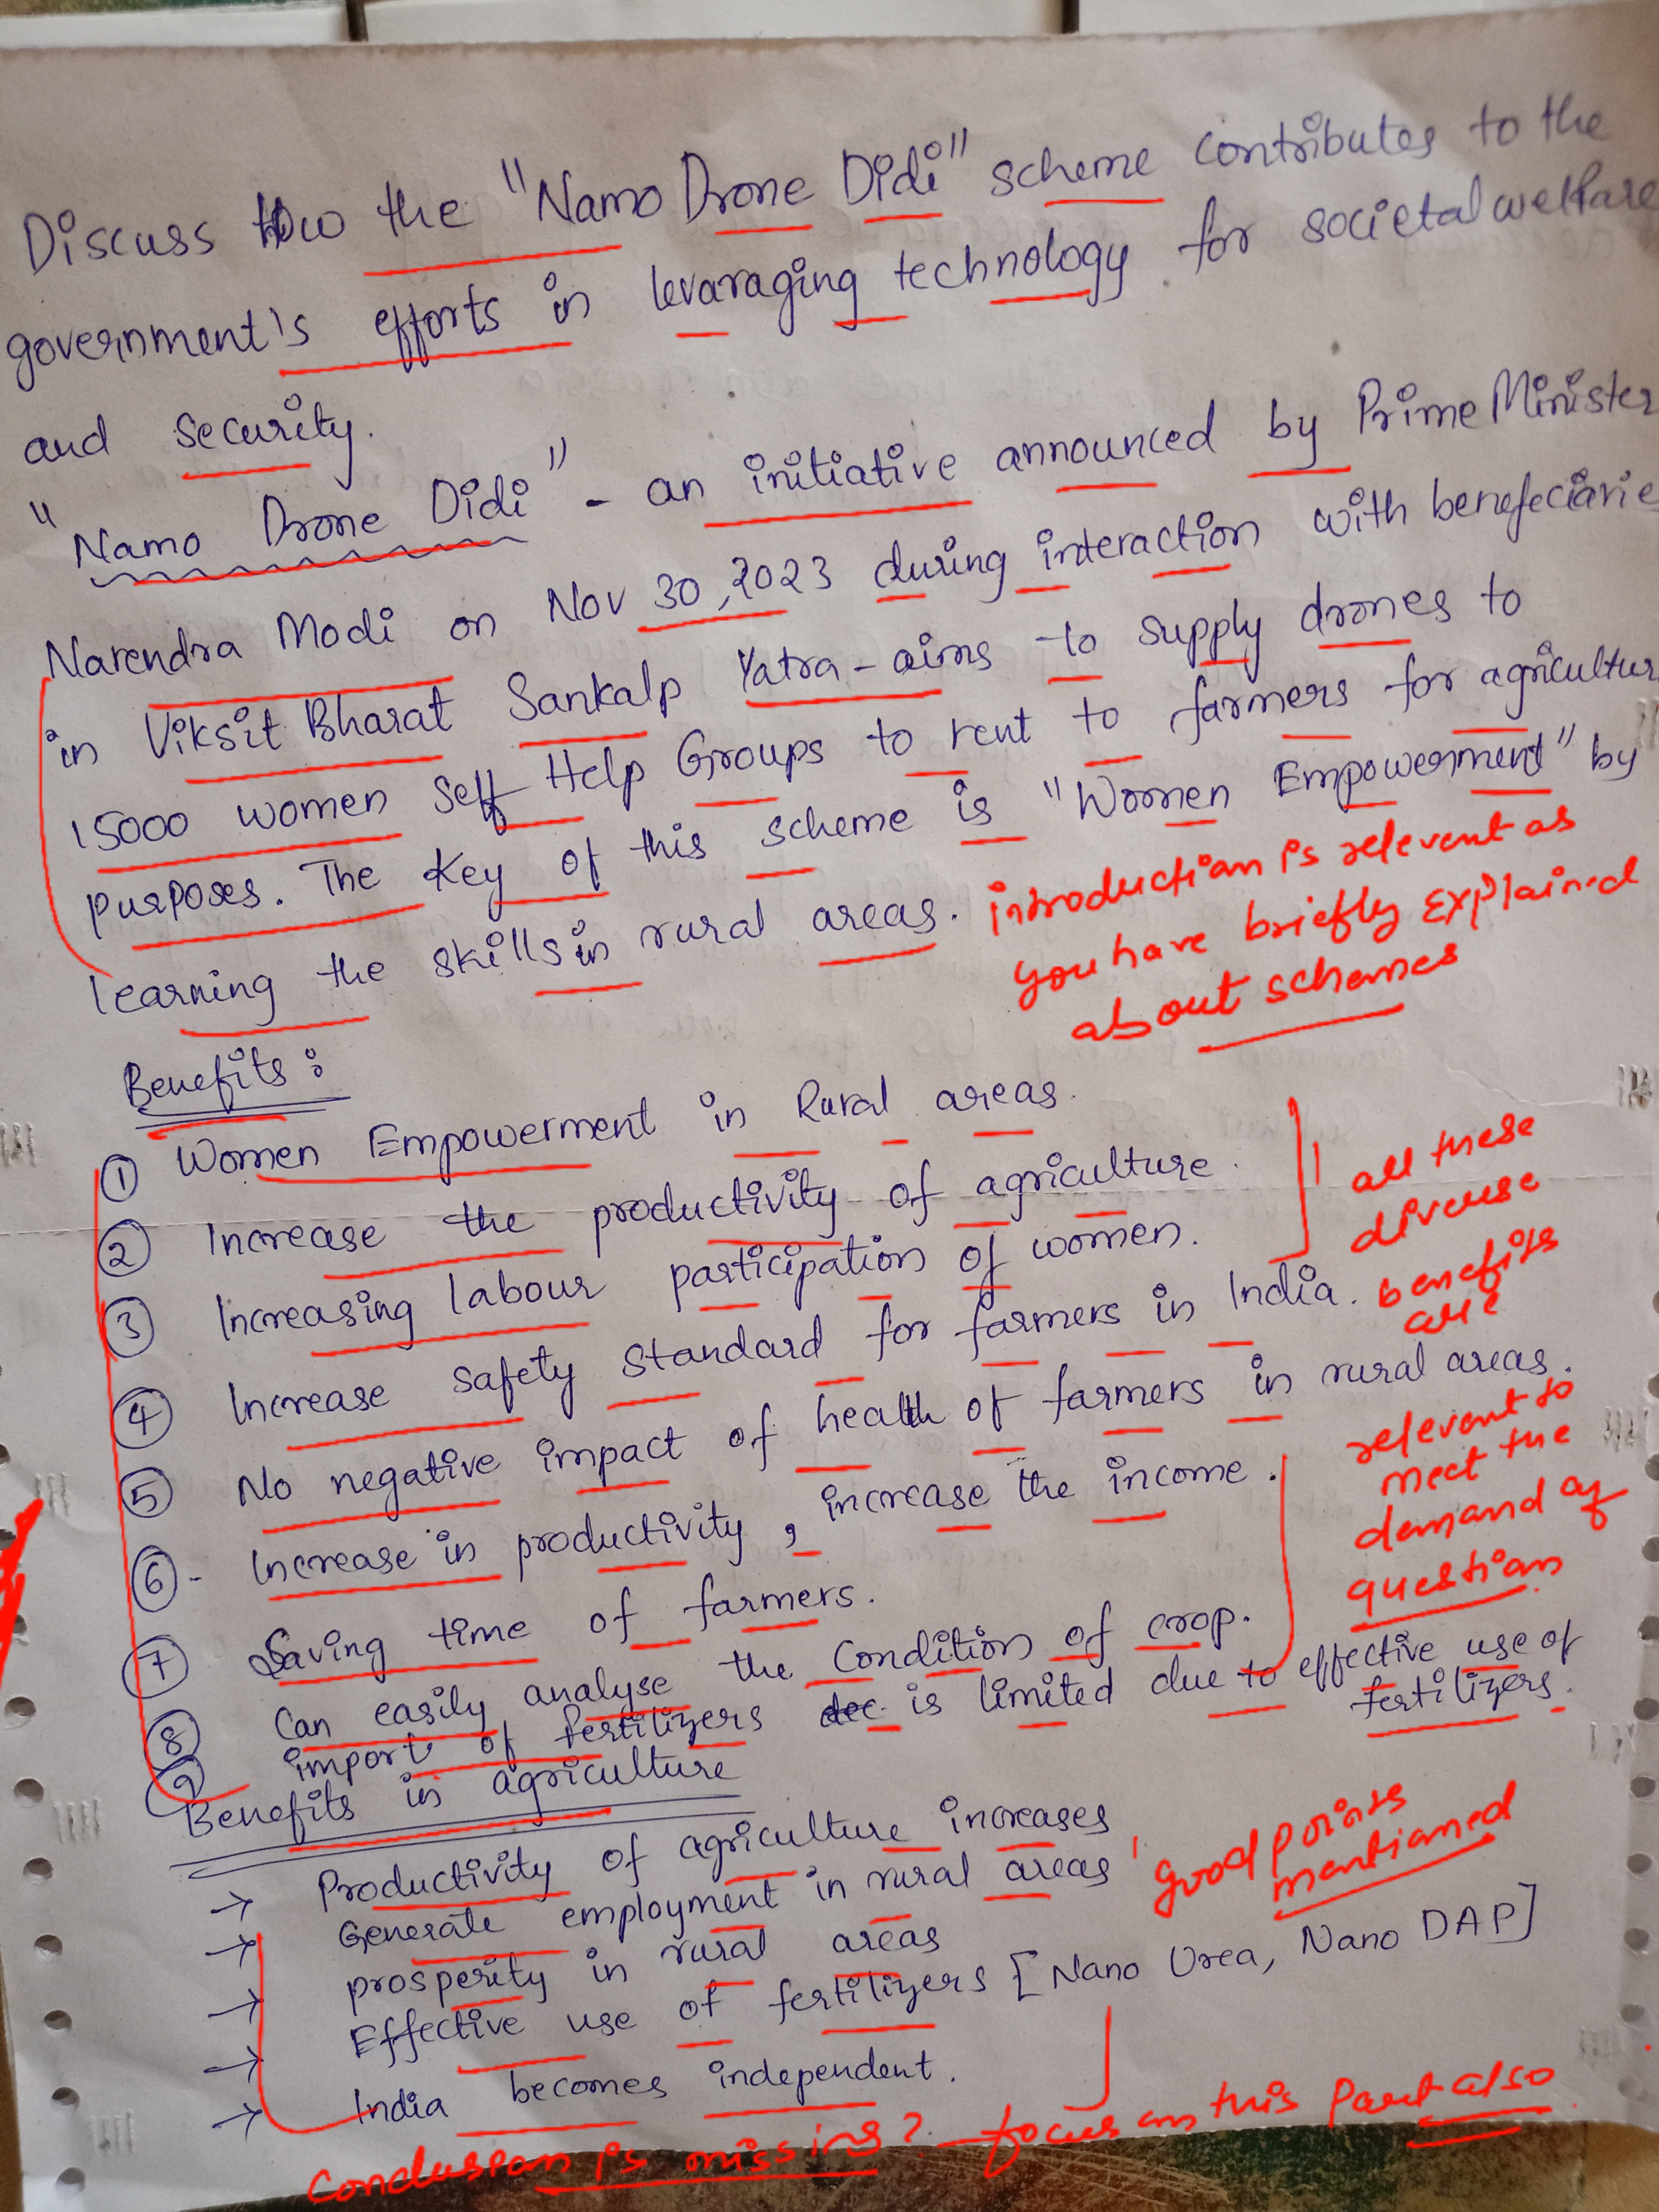 Discuss How the "Namo Drone Didi" scheme contributes to the
government's efforts in levaraging technology for societal welfare
and security.
"Namo Drone Didi" - an initiative announced by Prime Minister
Narendra Modi on Nov 30, 2023 during interaction with benefeciarie
in Viksit Bharat Sankalp Yatra - aims to supply drones to
15000 women Self Help Groups to rent to farmers for agricultur
purposes. The key of this scheme is "Women Empowerment" by
learning the skills in rural areas.
introduction is relevent as
you have briefly explained
about schemes
Benefits :
① Women Empowerment in Rural areas.
② Increase the productivity of agriculture.
③ Increasing labour participation of women.
④ Increase safety standard for farmers in India.
⑤ No negative impact of health of farmers in rural areas.
⑥ - Increase in productivity, increase the income.
⑦ Saving time of farmers.
⑧ Can easily analyse the condition of crop.
⑨ import of fertilizers dec is limited due to effective use of
fertilizers.
all these
diverse
benefits
are
relevent to
meet the
demand of
question
Benefits in agriculture
→ Productivity of agriculture increases
→ Generate employment in rural areas
→ prosperity in rural areas
→ Effective use of fertilizers [Nano Urea, Nano DAP]
→ India becomes independent.
good points
mentioned
Conclusion is missing? focus on this part also